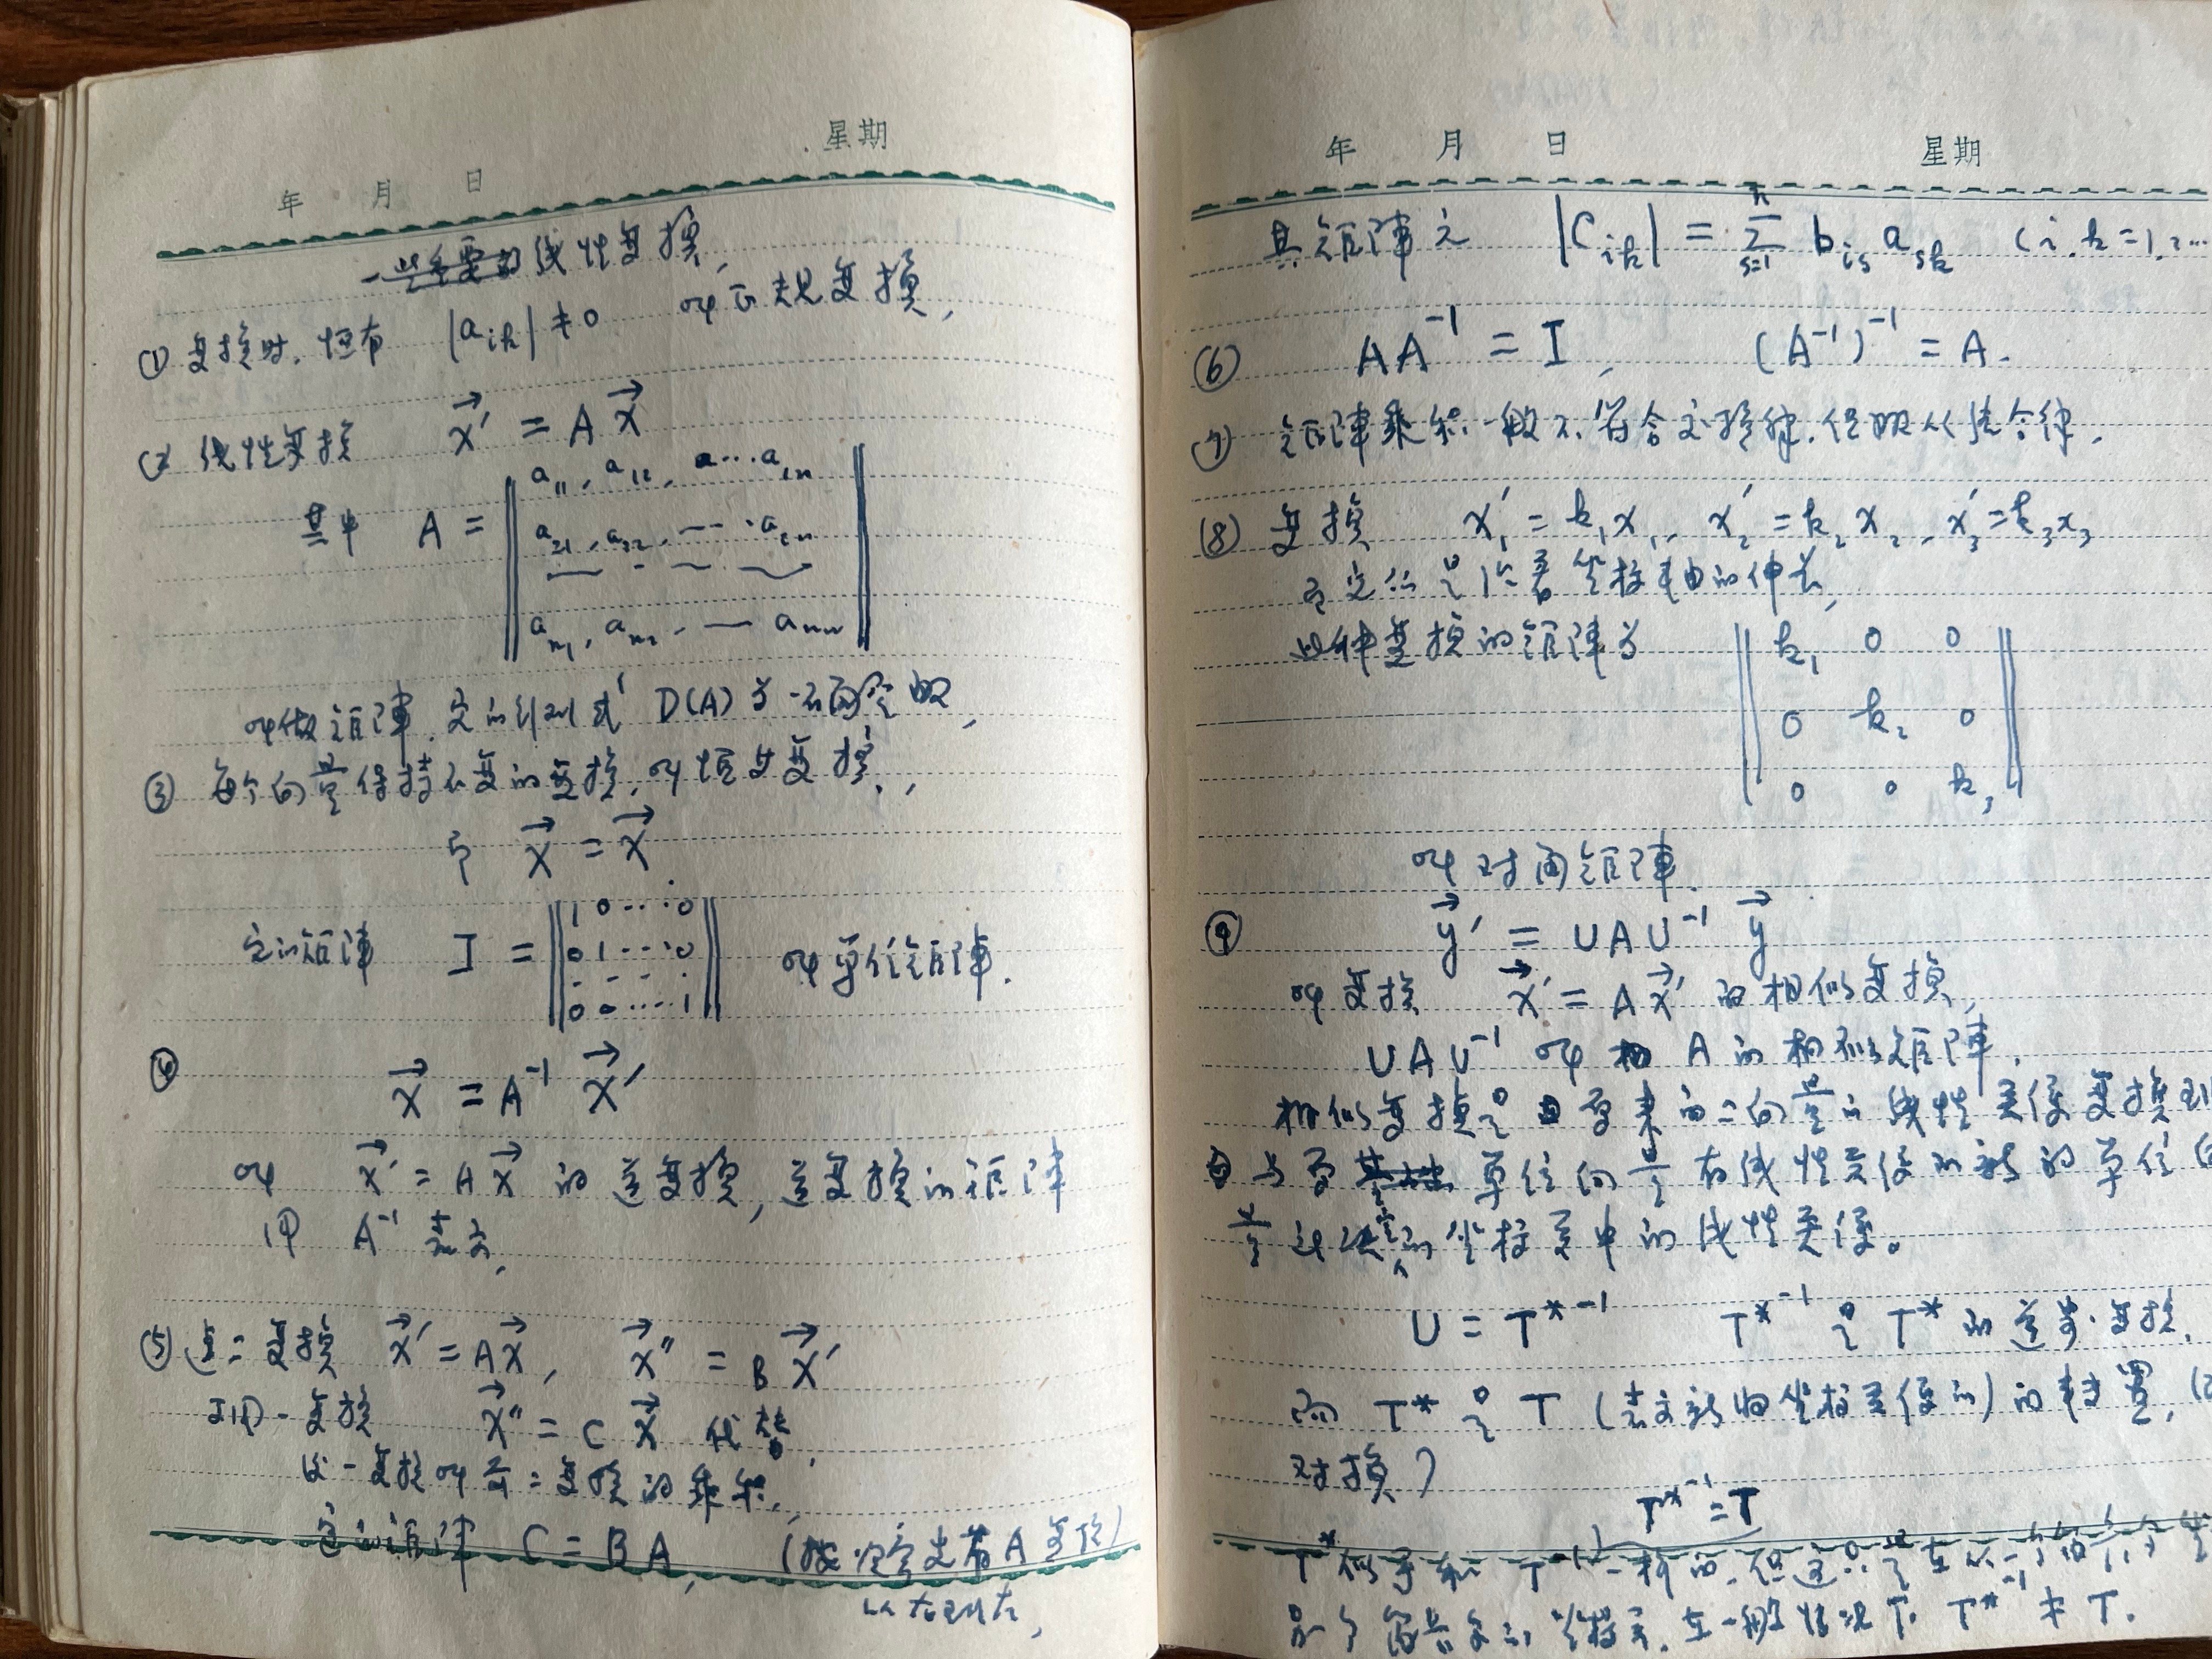 年 月 日 星期
一些重要的线性变换,
① 变换时, 恒有 |aᵢₖ| ≠ 0 叫正规变换,
② 线性变换 x⃗′ = A x⃗
其中 A = ‖ a₁₁, a₁₂, … a₁ₙ
a₂₁, a₂₂, … a₂ₙ
aₙ₁, aₙ₂, — aₙₙ ‖
叫做矩陣, 它的行列式 D(A) 为
③ 每个向量保持不变的变换, 叫恒等变换,
即 x⃗ = x⃗
它的矩陣 I = ‖ 1 0 … 0
0 1 … 0
0 0 … 1 ‖ 叫单位矩陣.
④ x⃗ = A⁻¹ x⃗′
叫 x⃗′ = A x⃗ 的逆变换, 逆变换的矩陣
用 A⁻¹ 表示,
⑤ 连二变换 x⃗′ = A x⃗, x⃗″ = B x⃗′
可用一变换 x⃗″ = C x⃗ 代替,
这一变换叫前二变换的乘积,
它的矩陣 C = B A, (按次序先幂 A 变换)
从右到左,
年 月 日 星期
其矩陣之 |Cᵢₖ| = Σₛ₌₁ⁿ bᵢₛ aₛₖ (i, k = 1, …
⑥ A A⁻¹ = I, (A⁻¹)⁻¹ = A.
⑦ 矩陣乘积一般不符合交换律, 但服从结合律.
⑧ 变换 x₁′ = k₁x₁, x₂′ = k₂x₂, x₃′ = k₃x₃
它定的是沿着坐标轴的伸长,
此种变换的矩陣为 ‖ k₁ 0 0
0 k₂ 0
0 0 k₃ ‖
叫对角矩陣.
⑨ y⃗′ = U A U⁻¹ y⃗
叫变换 x⃗′ = A x⃗′ 的相似变换,
U A U⁻¹ 叫 A 的相似矩陣.
相似变换是由原来的二向量的线性关係变换到
由与原单位向量有线性关係的新的单位向
量决定的坐标系中的线性关係。
U = T*⁻¹ T*⁻¹ 是 T* 的逆变换.
而 T* 是 T (表示新旧坐标关係的) 的转置, (
对换)
T*⁻¹ = T
T* 似乎和 T⁻¹ 一样的, 但这只是在
坐标系, 在一般情况下 T*⁻¹ ≠ T.